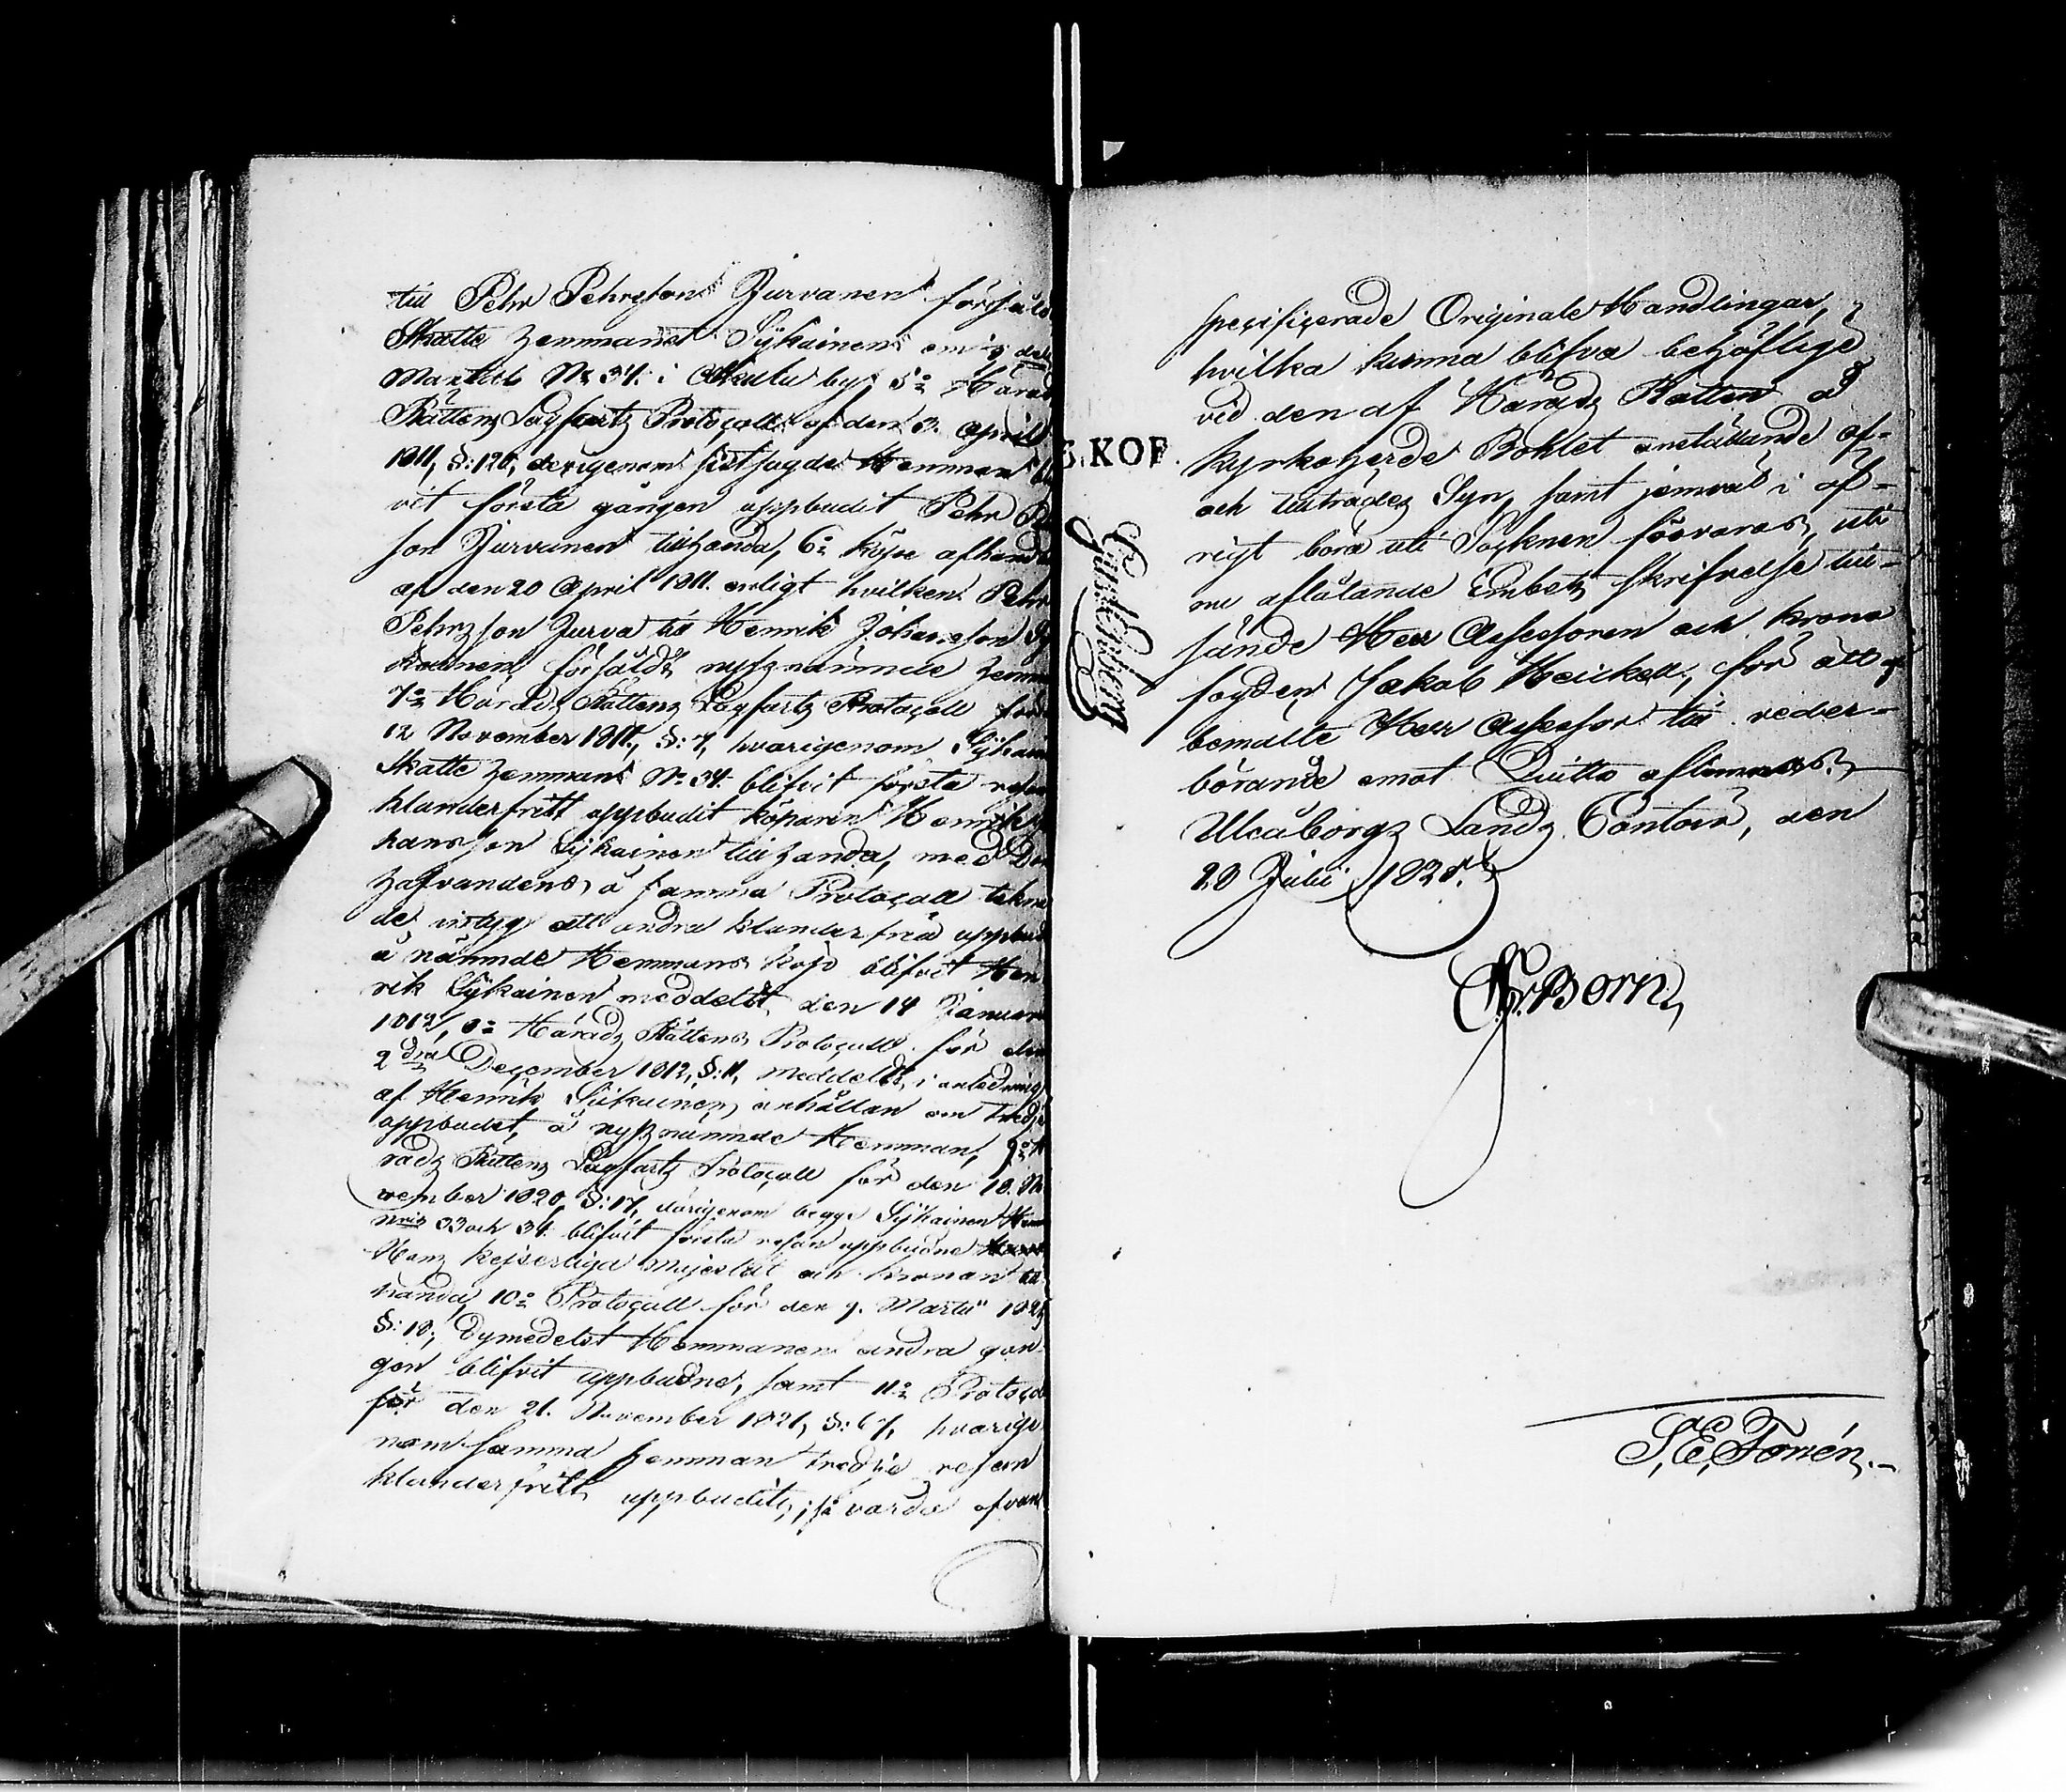 till Pehr Pehrsson Jurvanen försåld
Skatte Hemmanet Sykäinen om
Mantal N:o 34. i Akula by, 5:o Härads
Rättens Lagfarts Protocoll af den 3. April
1811, §: 126, derigenom sistsagde Hemman bli
vit första gången uppbudit Pehr Pe
son Jurvanen tillhanda, 6:o Köpe afhandl
af den 20 April 1811. enligt hvilken Pehr
Pehrsson Jurva till Henrik Johansson Sy
kainen försåldt nyssnämnde hemm
7:o Härads Rättens Lagfarts Protocoll för d
12 November 1811, §: 7, hvarigenom Sykain
Skatte hemmant N:o 34. blifvit första resan
klanderfritt uppbudit köparen Henrik
hansson Sykainen till handa, med Dom
hafvandens å samma Protocoll tekna
de intyg att andra klanderfria uppbud
å nämnde Hemmans köp blifvit Hen
rik Sykainen meddelt den 14 Januari
1812, 8:o Härads Rättens Protocoll för den
2dra December 1812, §: 11, meddelt, i anledning
af Henrik Siikainens anhållan om tredje
uppbudet, å nyssnämnde Hemman, 9:o H
rads Rättens Lagfarts Protocoll för den 18. No
vember 1820, §: 17, därigenom begge Sykainen Hem
N:ris 33 och 34. blifvit första resan uppbudne
Hans Kejserliga Majestät och Kronan till
handa, 10:o Protocoll för den 9. Martii 1821,
§: 18, Dymedelst Hemmanen andra gån-
gen blifvit uppbudne, samt 11:o Protoco
för den 21. November 1821, §: 67, hvarige
nom samma hemman tredje resan
klanderfritt uppbudits; så varda ofvan
S.KOP.
Gyldenberg
specificerade Originale Handlingar,
hvilka kunna blifva behöflige
vid den af Härads Rätten å
Kyrkoherde Bohlet anställande af-
och tillträdes Syn, samt jemväl i öf-
rigt böra uti Socknen förvaras, uti
nu aflåtande Embets skrifvelse till-
sände Herr Assessoren och Krono
fogden Jakob Heickell, för att af
bemälte Herr Assessor till veder-
börande emot Quitto aflemnas.
Uleåborgs Lands Contoir, den
20 Julii 1825.
Born
S, E, Tornén.-